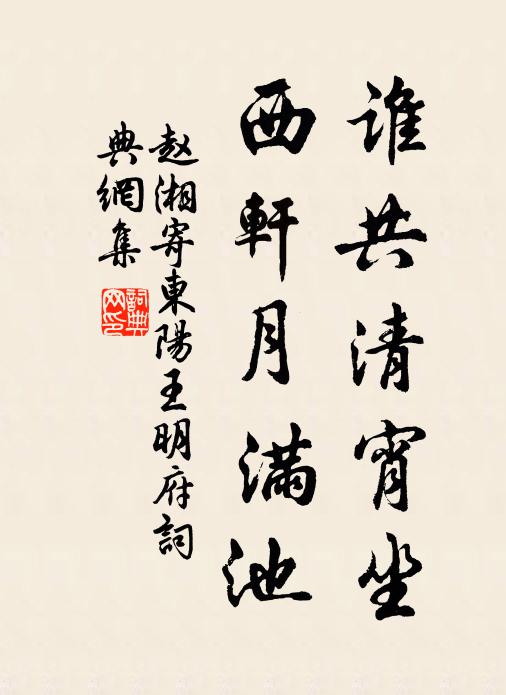 誰共清宵坐
西軒月滿池
赵湘寄東陽王明府詞
典網集
詞典網印